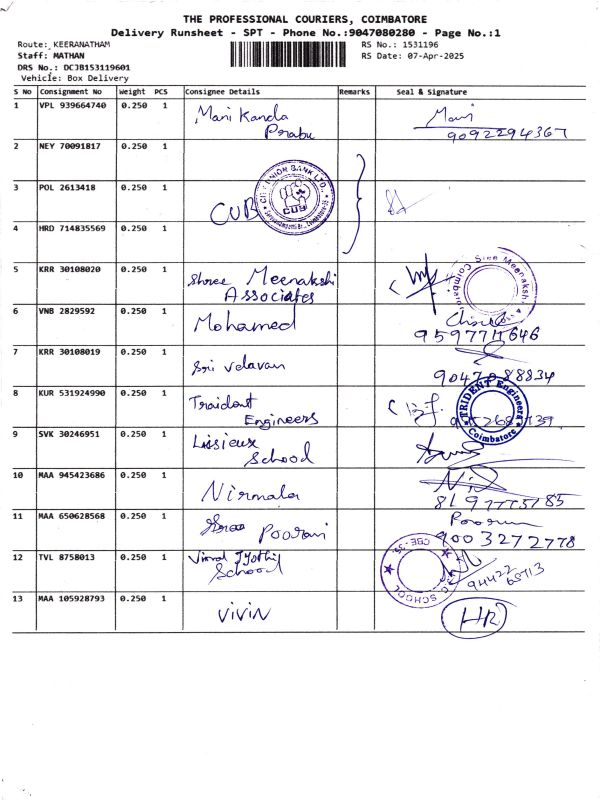 THE PROFESSIONAL COURIERS, COIMBATORE
Delivery Runsheet - SPT - Phone No.:9047080280 - Page No.:1
Route: KEERANATHAM RS No.: 1531196
Staff: MATHAN RS Date: 07-Apr-2025
DRS No.: DCJB153119601
Vehicle: Box Delivery
S No Consignment No Weight PCS Consignee Details Remarks Seal & Signature
1 VPL 939664740 0.250 1 Mani Kanda Mani
Prabu 9092294367
2 NEY 70091817 0.250 1
3 POL 2613418 0.250 1 CUB
CITY UNION BANK LTD. CUB
4 HRD 714835569 0.250 1
5 KRR 30108020 0.250 1 Shree Meenakshi
Associates
Sree Meenakshi Coimbatore
6 VNB 2829592 0.250 1 Mohamed
7 KRR 30108019 0.250 1 Sri velavan
8 KUR 531924990 0.250 1 Traident
Engineers
TRIDENT Engineers Coimbatore
9 SVK 30246951 0.250 1 Lissieux
School
10 MAA 945423686 0.250 1 Nirmala
11 MAA 650628568 0.250 1 Sree Poorani
9003272778
12 TVL 8758013 0.250 1 Vimal Jyothi
School
SCHOOL CBE-35
13 MAA 105928793 0.250 1 VIVIN HR